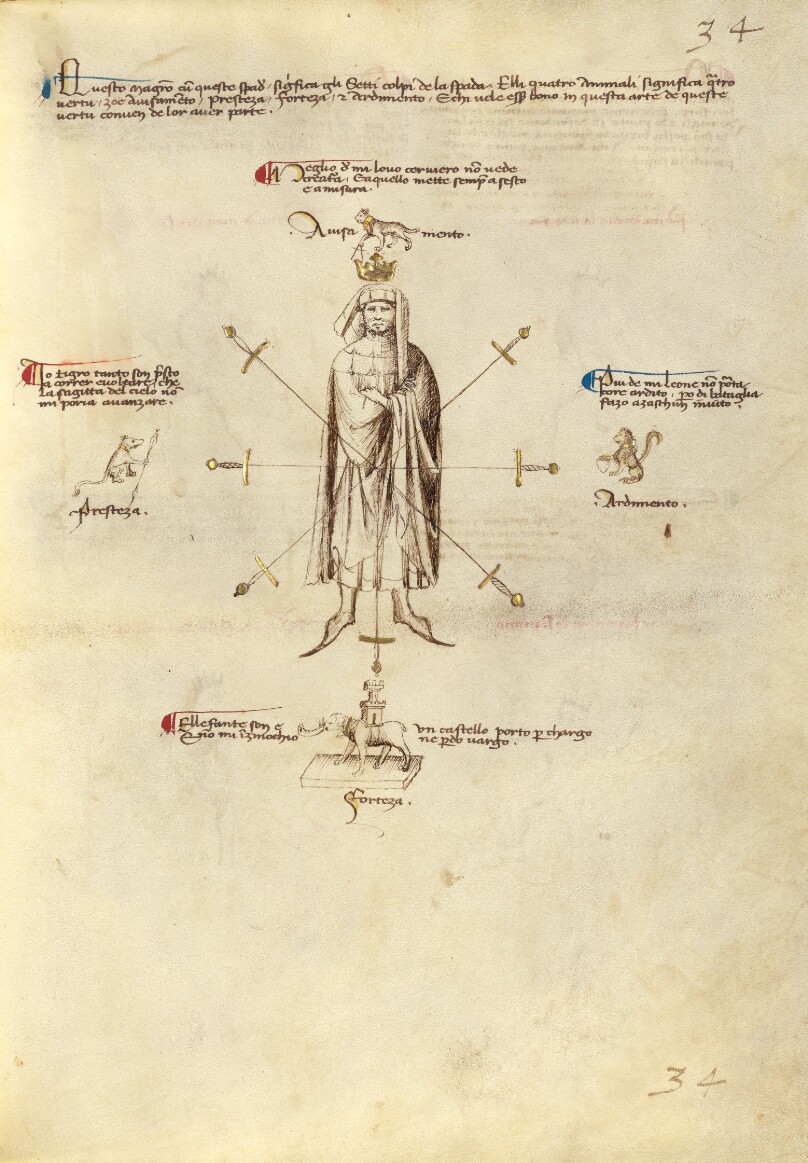 34
Questo magro cū queste spad', sig̃fica gli Setti colpi de la spada. Elli quatro animali significa q̃tro
vertu, zoe avisamēto, Presteza, Forteza, ꝛ Ardimento. E chi vole ess̃ bono in questa arte de queste
vertu conven de lor aver parte.
Meglio d' mi lovo cerviero nō vede
creat̃a, E aquello mette semp̃ a sesto
e a misura.
Avisa mento.
Io tigro tanto son p̃sto
a correr e voltare, che
la sagitta del cielo nō
mi poria avanzare.
Presteza.
Piu de mi leone nō porta
core ardito, po di bataglia
fazo a zaschun invito.
Ardimento.
Ellefante son e un castello porto p chargo
E nō mi īzinochio ne p̱do vargo.
Forteza.
34